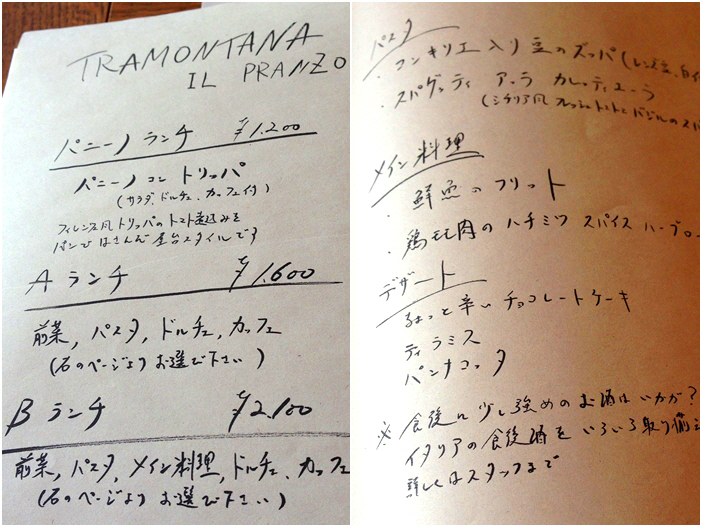 TRAMONTANA
IL PRANZO
パニーノ ランチ ¥1.200
パニーノ コン トリッパ
(サラダ、ドルチェ、カッフェ付)
フィレンツェ風トリッパのトマト煮込みを
パンではさんだ屋台スタイルです
A ランチ ¥1.600
前菜, パスタ, ドルチェ, カッフェ
(右のページよりお選び下さい)
B ランチ ¥2.100
前菜, パスタ, メイン料理, ドルチェ、カッフェ
(右のページよりお選び下さい)
パスタ
・コンキリエ入り豆のズッパ(レンズ豆、白イ
・スパゲッティ アッラ カレッティエーラ
(シチリア風 フレッシュトマトとバジルのスパ
メイン料理
・鮮魚のフリット
・鶏モモ肉のハチミツ スパイス ハーブロー
デザート
ちょっと辛いチョコレートケーキ
ティラミス
パンナコッタ
※食後に少し強めのお酒はいかが?
イタリアの食後酒をいろいろ取り揃え
詳しくはスタッフまで